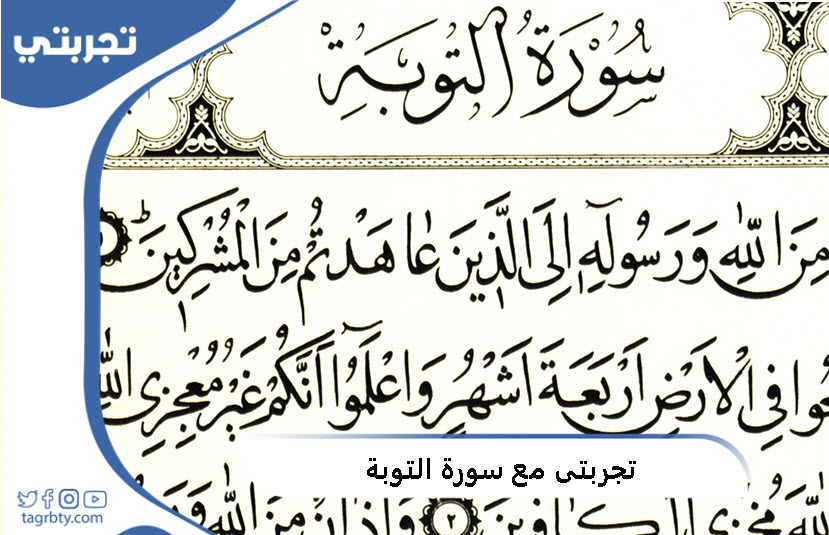 تجربتي
سُورَةُ التَّوْبَةِ
مِنَ اللّٰهِ وَرَسُولِهٖٓ اِلَى الَّذٖينَ عَاهَدْتُمْ مِنَ الْمُشْرِكٖينَ ط
فِي الْاَرْضِ اَرْبَعَةَ اَشْهُرٍ وَاعْلَمُٓوا اَنَّكُمْ غَيْرُ مُعْجِزِي اللّٰهِ
تجربتى مع سورة التوبة
٢ وَاَذَانٌ مِنَ اللّٰهِ
tagrbty.com